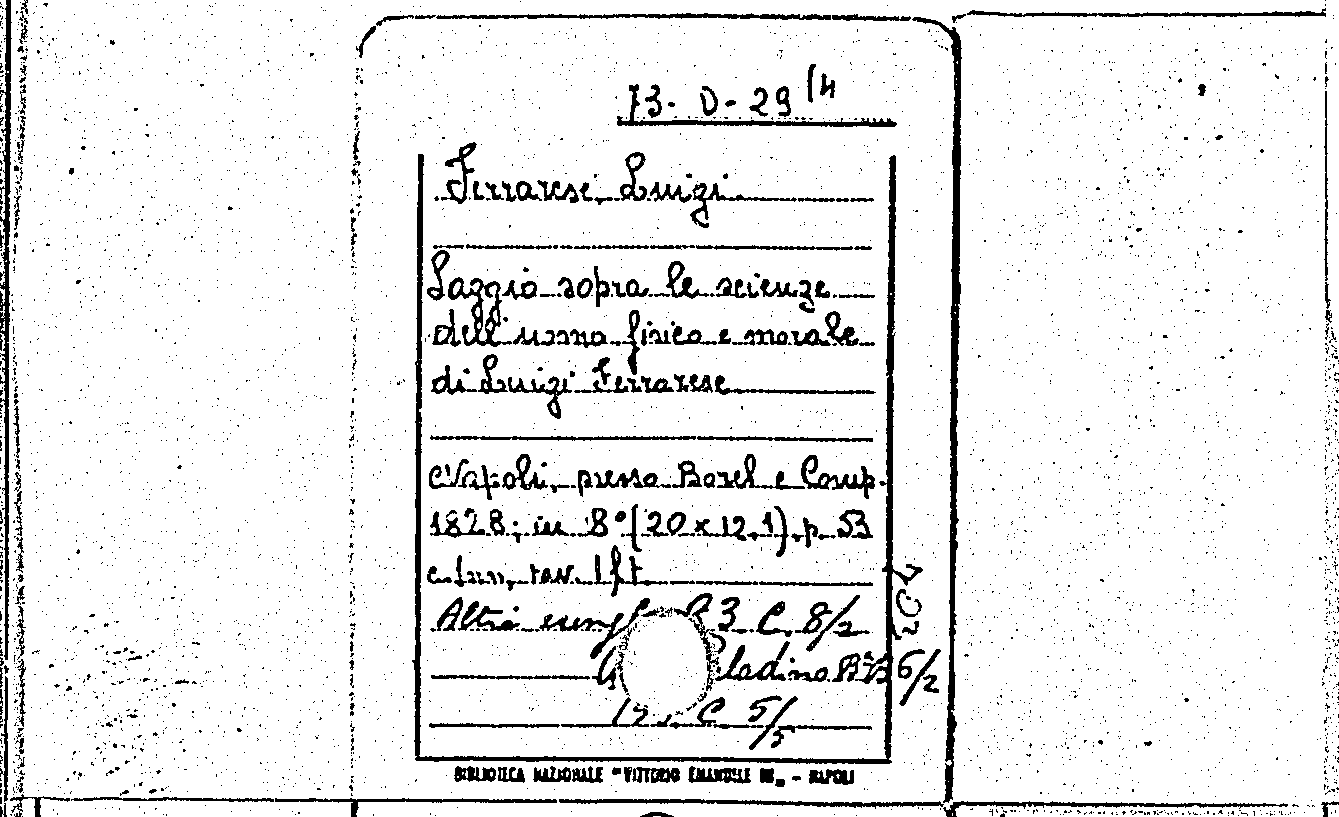 73- D- 29 /4
Ferrarese, Luigi
Saggio sopra le scienze
dell'uomo fisico e morale
di Luigi Ferrarese
Napoli, presso Borel e Comp.
1828; in 8° (20 x 12,1), p. 53
tav. 1 f.t.
Altri 3 C. 8/2
ladino 6/2
C 5/5
204
BIBLIOTECA NAZIONALE "VITTORIO EMANUELE III" - NAPOLI